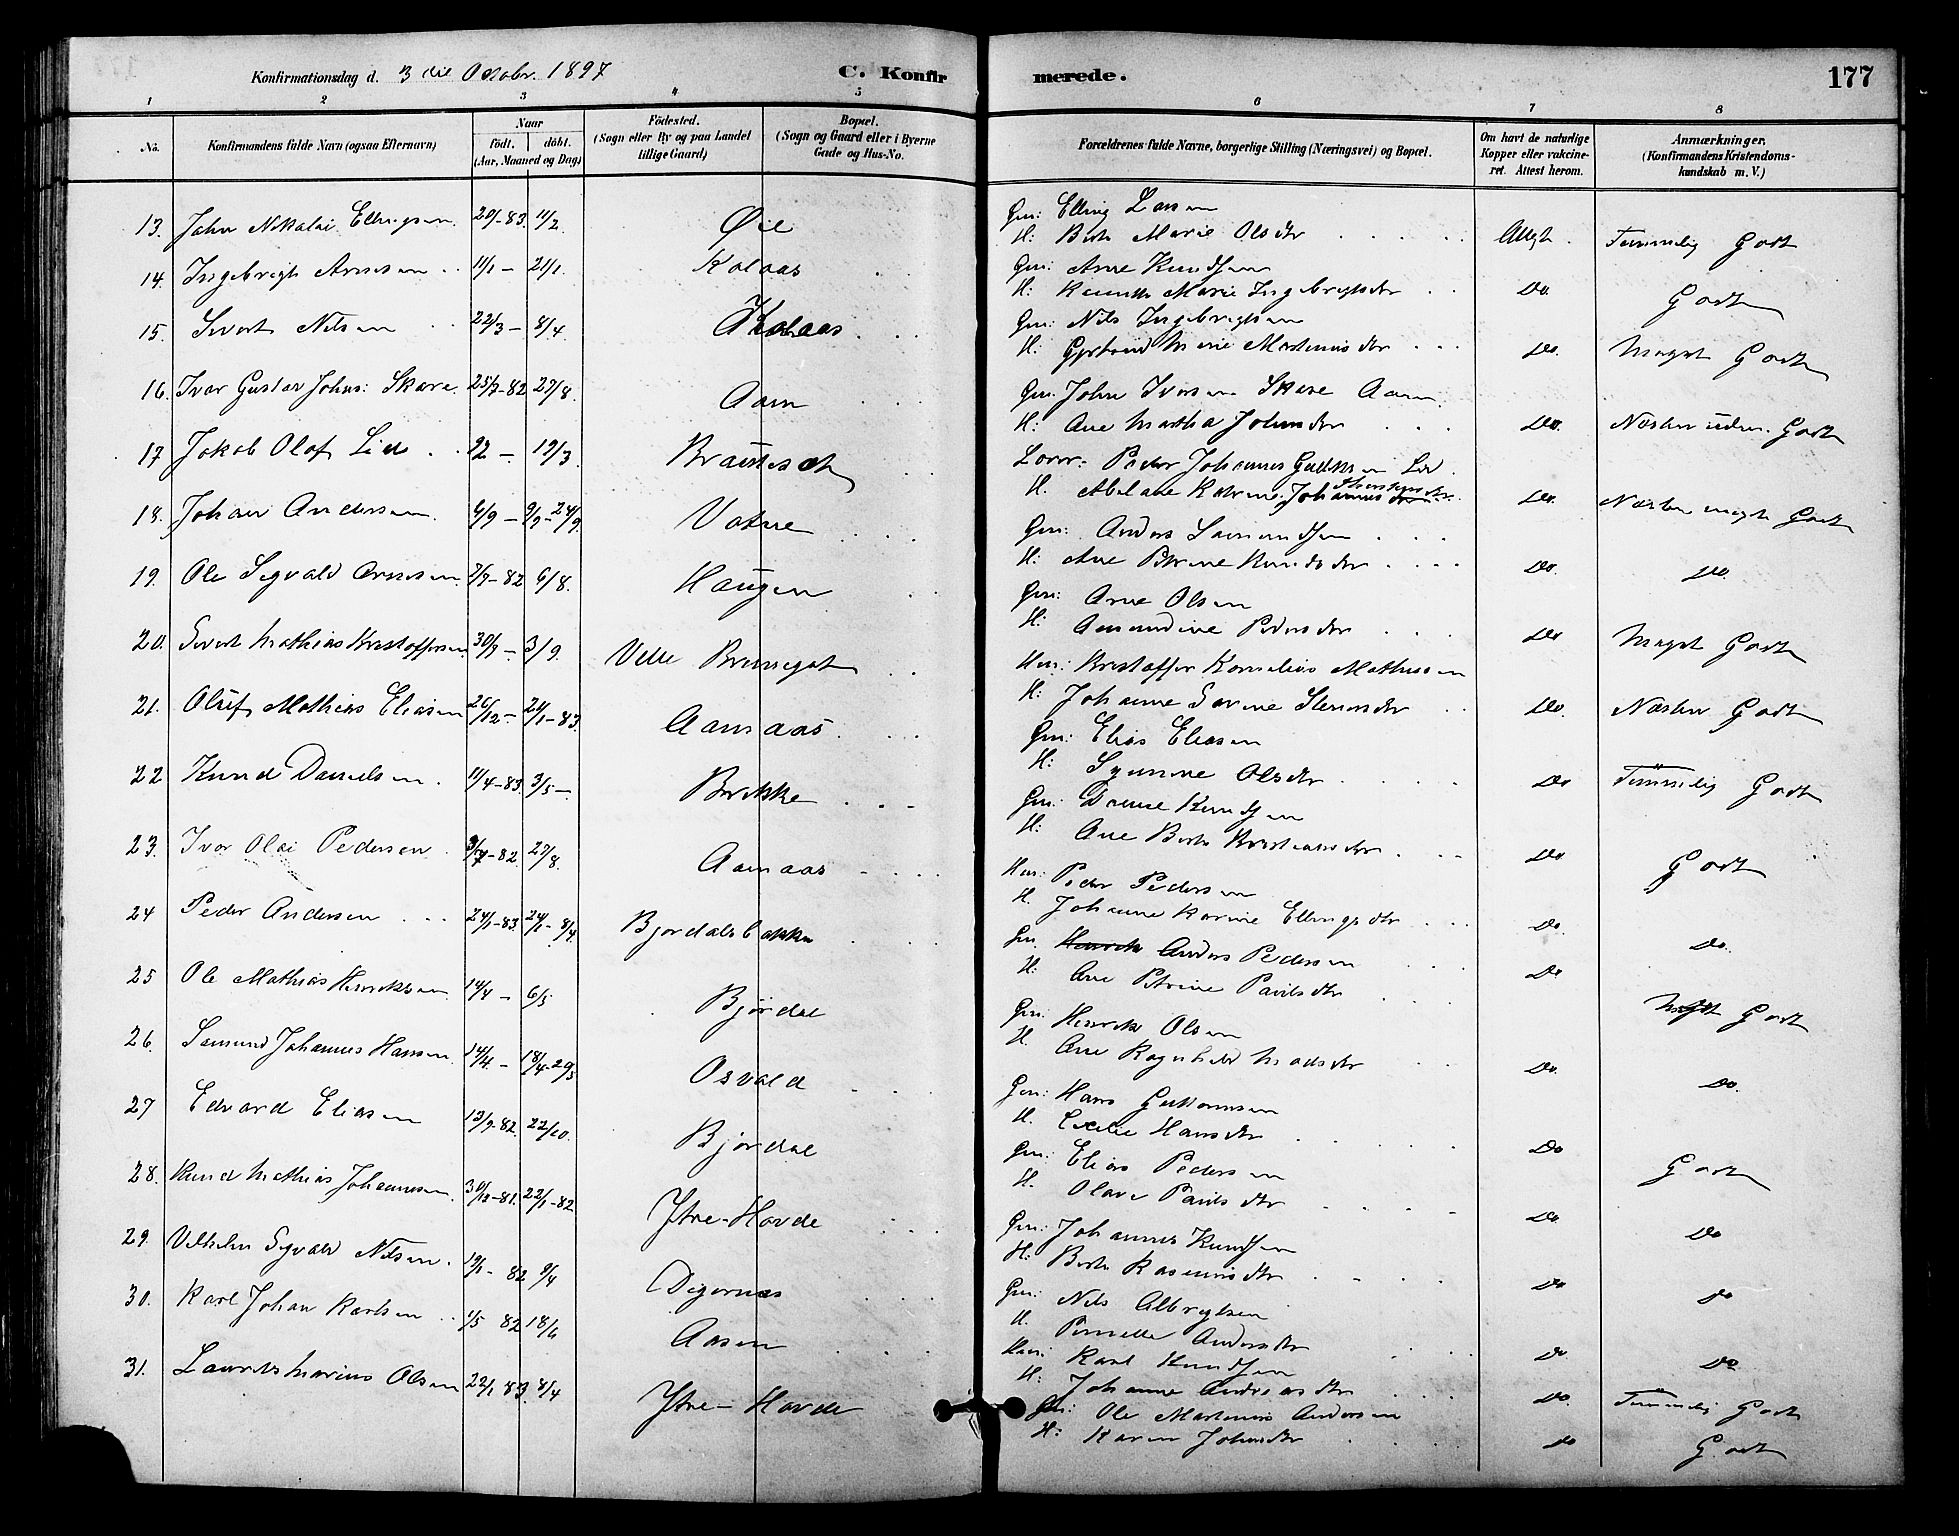 Konfirmationsdag d. 3 die Octobr. 1897
C. Konfirmerede.
177
1 2 3 4 5 6 7 8
No. Konfirmandens fulde Navn (ogsaa Efternavn) Naar födt. döbt. (Aar, Maaned og Dag) Födested. (Sogn eller By og paa Landet tillige Gaard) Bopæl. (Sogn og Gaard eller i Byerne Gade og Hus-No. Forældrenes fulde Navne, borgerlige Stilling (Næringsvei) og Bopæl. Om havt de naturlige Kopper eller vakcineret. Attest herom. Anmærkninger. (Konfirmandens Kristendomskundskab m. V.)
13. John Nikolai Ellingsen 20/1-83. 11/2. Øie Gm: Elling Larsen
H: Berte Marie Olsdtr Attest. Temmelig Godt
14. Ingebrigt Arnesen 11/1 - 21/1. Kolaas Gm: Arne Knudsen
H: Marie Ingebrigtsdtr Do. Godt
15. Sivert Nilsen 22/3 - 8/4. Kolaas Gm: Nils Ingebrigtsen
H: Marie Martinusdtr Do. Meget Godt
16. Ivar Gustav Johns: Skare 25/7-82 27/8. Aam Gm. John Iversen Skare Aam.
H: Ane Martha Johnsdtr Do. Næsten uden. Godt
17 Jakob Olaf Lid 22 - 19/3. Peder Johannes Lid
H. Abelone Katrine Do. Næsten meget Godt
18. Johan Andersen 6/9 - 9/9-24/9. Vatne Gm: Anders
H: Ane Petrine Knudsdtr Do. Do.
19. Ole Sigvald Arnesen 7/7-82 6/8. Haugen Gm: Arne Olsen
H: Amundine Pedersdtr Do Meget Godt
20. Sivert Mathias Kristoffersen 30/7 - 3/9. Velle Kristoffer Kornelius Mathiassen
H: Johanne Do. Næsten Godt
21. Oluf Mathias Eliasen 26/12 - 21/1-83. Aamaas Gm: Elias Eliasen
H: Olsdtr Do Temmelig Godt
22 Knud Danielsen 11/4-83. 3/5 -. Brekke Gm: Knudsen
H: Ane Berte Kristiansdtr Do Godt
23. Ivar Olai Pedersen 27/8. Aamaas Peder Pedersen
H. Johanne Karine Ellingsdtr Do. Do.
24 Peder Andersen 24/1-83. 24/1-8/4. Bjordalsbakke Gm. Henrik Anders Pedersen
H: Ane Petrine Paulsdtr Do Meget Godt
25 Ole Mathias Henriksen 14/4 - 6/5 Bjørdal Gm: Henrik Olsen
H Ane Ragnhild Madsdtr Do. Do.
26. Samund Johannes Hansen 14/4. - 18/4-20/5 Osvold Gm: Hans Guttormsen
H. Hansdtr Do Godt
27 Edvard Eliasen 13/9-82. 22/10. Bjørdal Gm: Elias Pedersen
H. Olave Paulsdtr Do. Do
28. Knud Mathias Johannesen 30/12-81. 22/1-82 Ytre-Hovde Gm: Johannes Knudsen
H: Berte Rasmusdtr Do Do
29. Vilhelm Sigvald Nilsen. 82 9/4 Digernæs Gm: Nils Albregtsen
H. Pernille Andersdtr Do. Do
30. Karl Johan Karlsen 1/5 82 18/6 Aasen Karl Knudsen
H: Johanne Andreasdtr Do. Temmelig Godt
31. Laurits Marius Olsen 22/1 83 8/4 Ytre-Hovde Gm: Ole Martinus Andersen
H: Karen Johnsdtr Do Godt